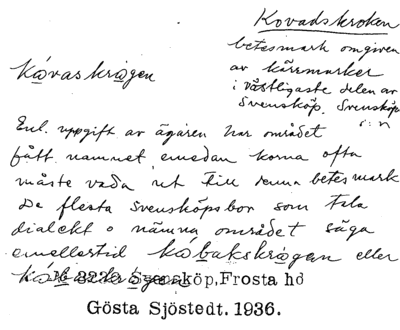 Kovadskroken
betesmark omgiven
av kärrmarker
i västligaste delen av
Svensköp. Svensköp
s:n
Kåvaskrågen
Enl. uppgift av ägaren har området
fått namnet emedan korna ofta
måste vada ut till denna betesmark
De flesta Svensköpsbor som tala
dialekt o nämna området säga
emellertid kåbakskrågen eller
3220 Svensköp, Frosta hd
Gösta Sjöstedt. 1936.